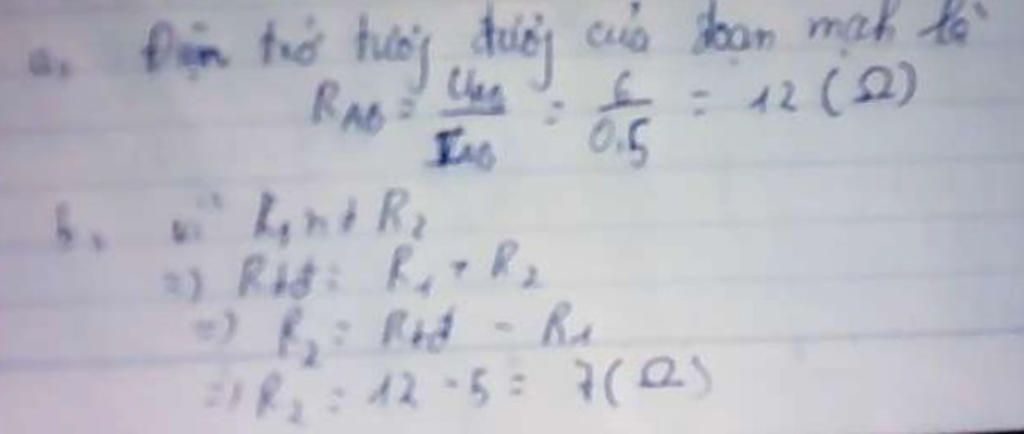 a, Điện trở tương đương của đoạn mạch là
R_AB = U_AB / I_AB = 6 / 0.5 = 12 (Ω)
b, vì R₁ nt R₂
=> Rtđ = R₁ + R₂
=> R₂ = Rtđ - R₁
=> R₂ = 12 - 5 = 7 (Ω)